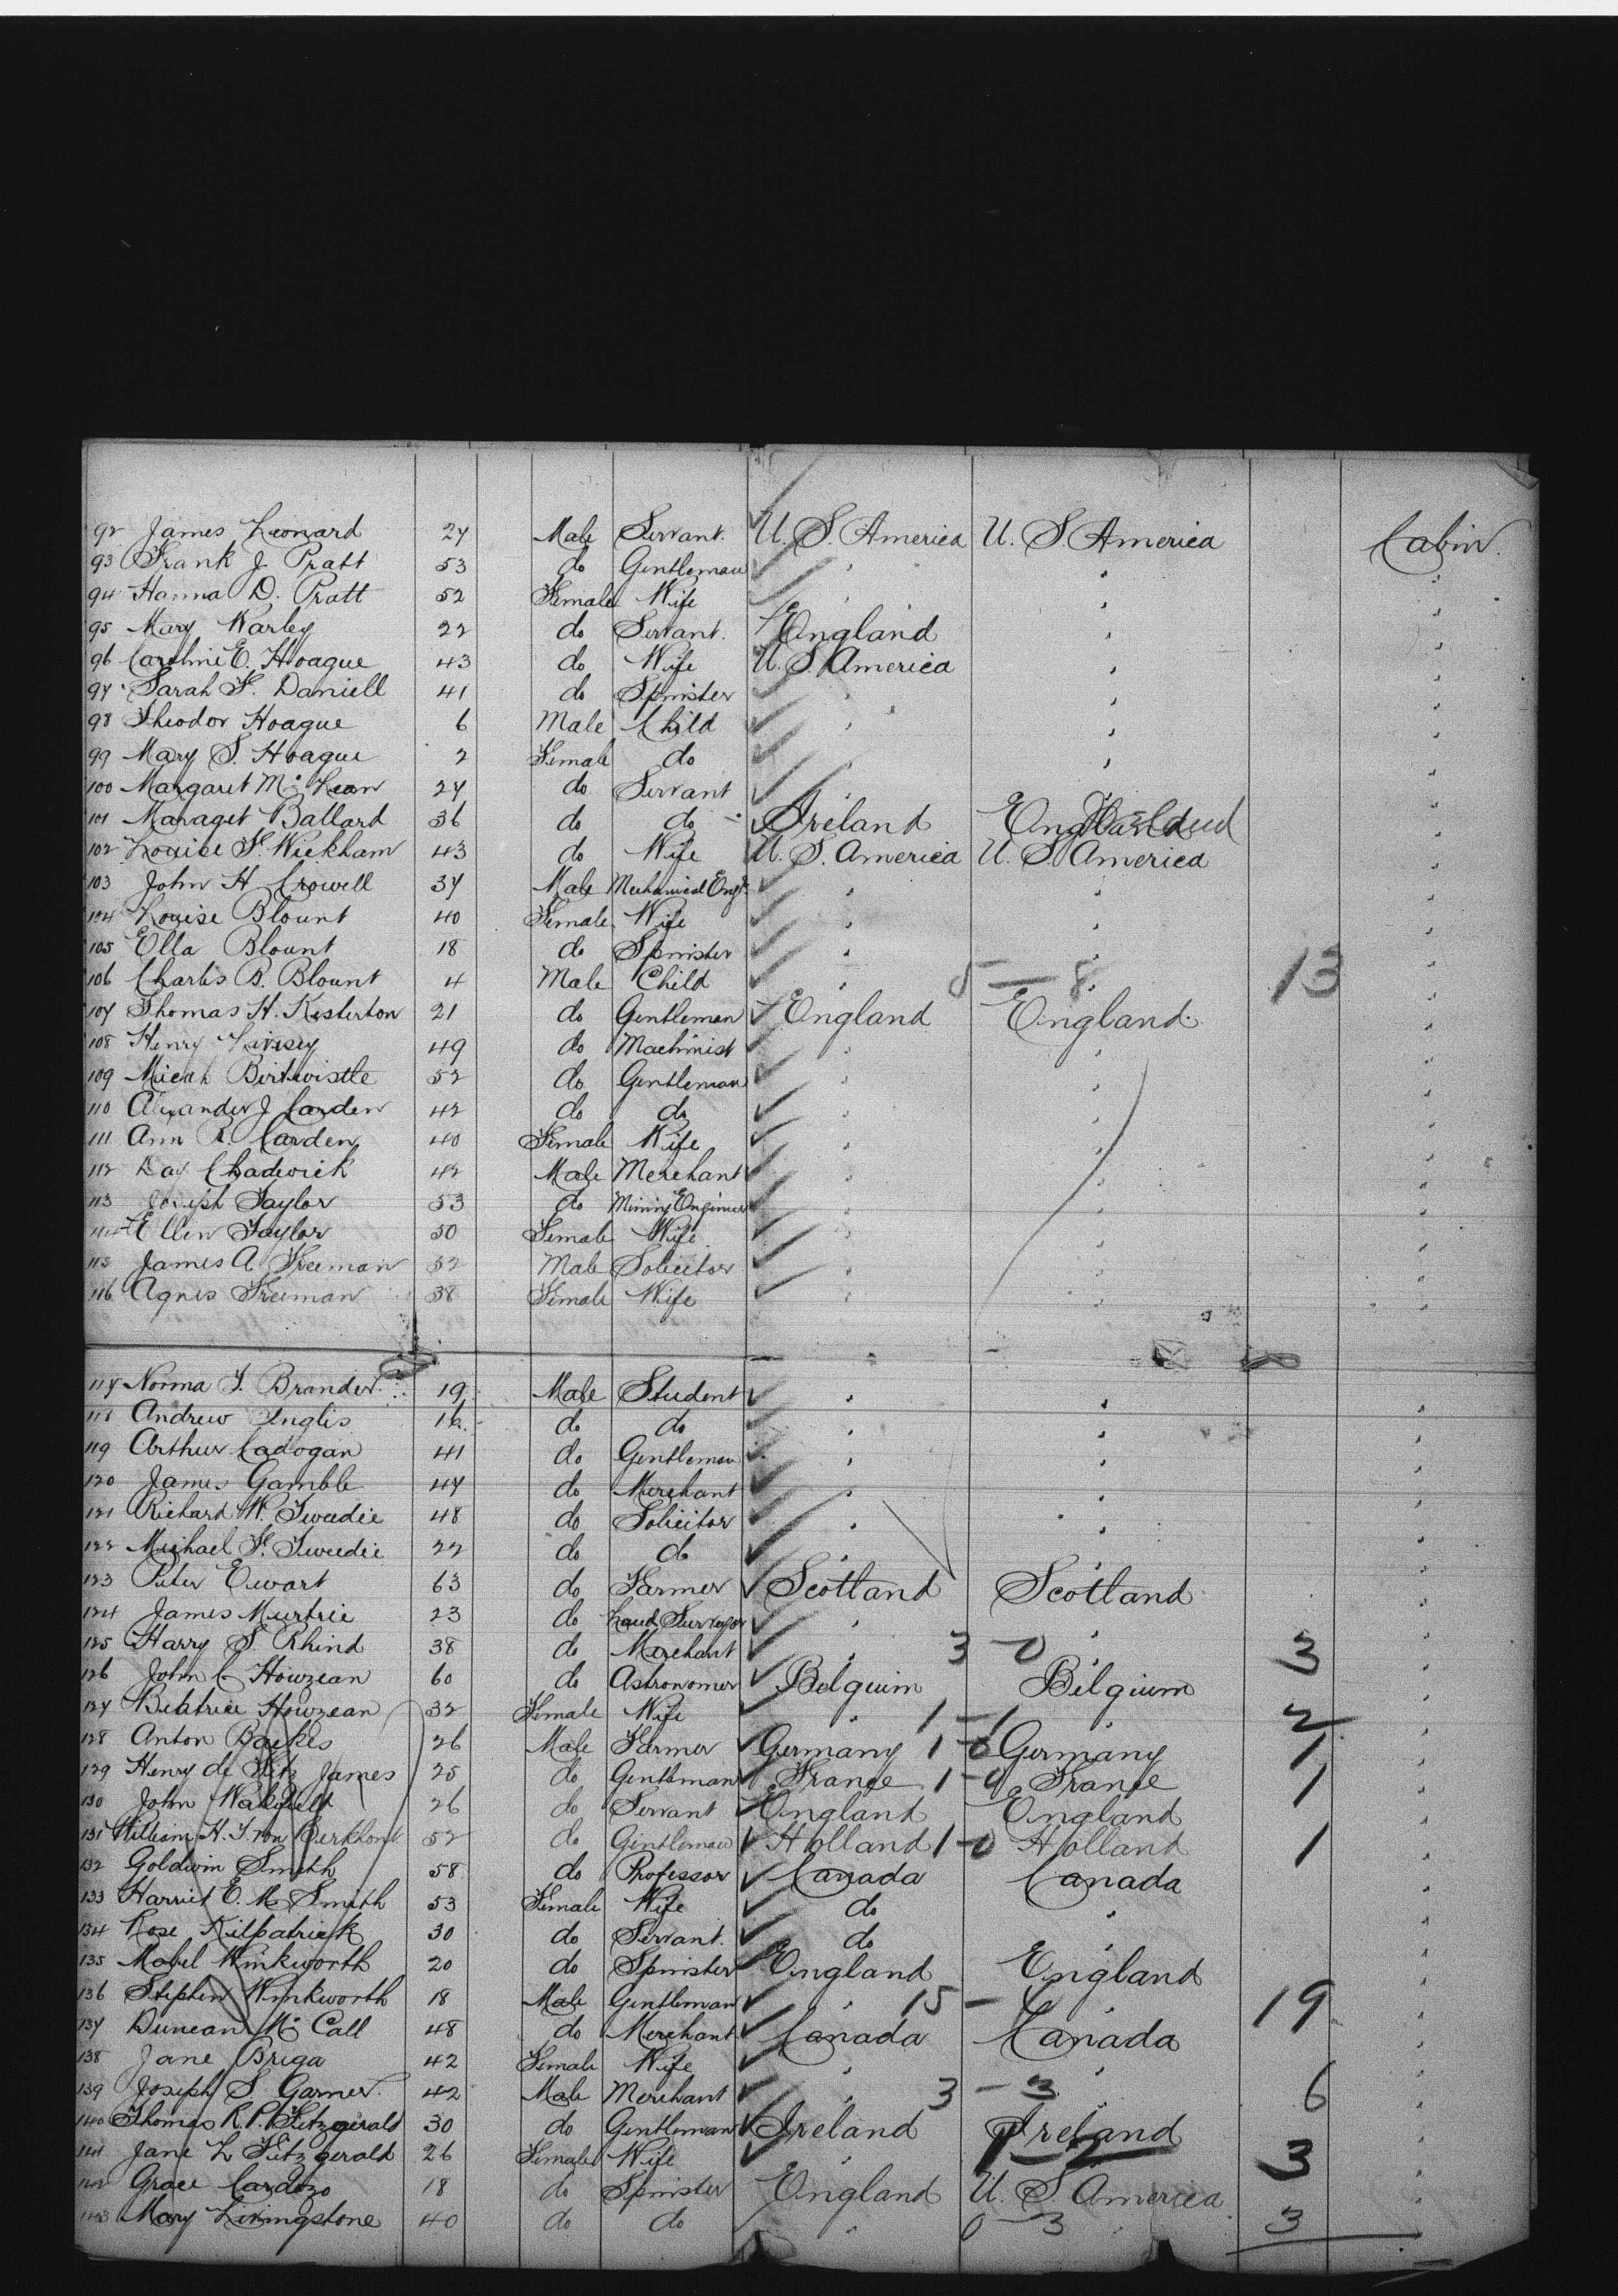 92 James Leonard 27 Male Servant. U. S. America U. S America Cabin.
93 Frank J. Pratt 53 do Gentleman " " "
94 Hanna D. Pratt 52 Female Wife " " "
95 Mary Warley 22 do Servant. England " "
96 Caroline E. Hoague 43 do Wife U. S. America " "
97 Sarah F. Daniell 41 do Spinister " " "
98 Theodor Hoague 6 Male Child " " "
99 Mary S. Hoague 2 Female do " " "
100 Margaret Mc Lean 27 do Servant " "
101 Managet Ballard 36 do do Ireland "
102 Louise F. Wickham 43 do Wife U. S. America U. S America "
103 John H Crowell 37 Male Mechanical Engr. " " "
104 Louise Blount 40 Female Wife " " "
105 Ella Blount 18 do Spinister " " "
106 Charles B. Blount 4 Male Child " 5 — 8 " 13 "
107 Thomas H. Kesterton 21 do Gentleman England England "
108 Henry Livisey 49 do Machinist " " "
109 Micah Birtwistle 52 do Gentleman " " "
110 Alexander J Carden 42 do do " " "
111 Ann R. Carden 40 Female Wife " " "
112 Chadwick 42 Male Merchant " " "
113 Joseph Taylor 53 do Mining Engineer " " "
114 Ellen Taylor 50 Female Wife " " "
115 James A. Freeman 52 Male Solicitor " " "
116 Agnes Freeman 38 Female Wife " " "
117 Norma T. Brander 19 Male Student " " "
118 Andrew Inglis 16 do do " " "
119 Arthur Cadogan 41 do Gentleman " " "
120 James Gamble 47 do Merchant " " "
121 Richard W. Tweedie 48 do Solicitor " " "
122 Michael F. Tweedie 22 do do " " "
123 Peter Ewart 63 do Farmer Scotland Scotland "
124 James Murtrie 23 do Land Surveyor " " "
125 Harry S. Rhind 38 do Merchant " 3 — 0 " 3 "
126 John C Howzean 60 do Astronomer Belgium Belgium "
127 Beatrice Howzean 32 Female Wife " 1 — 1 " 2 "
128 Anton Backes 26 Male Farmer Germany 1 — 0 Germany 1 "
129 Henry de Fitz James 25 do Gentleman France 1 — 0 France 1 "
130 John Wakefield 26 do Servant England England "
131 William H. J. von 52 do Gentleman Holland 1 — 0 Holland 1 "
132 Goldwin Smith 58 do Professor Canada Canada "
133 Harriet E. M. Smith 53 Female Wife do " "
134 Rose Kilpatrick 30 do Servant. do " "
135 Mabel Winkworth 20 do Spinister England England "
136 Stephen Winkworth 18 Male Gentleman " 15 — 4 " 19 "
137 Duncan Mc Call 48 do Merchant Canada Canada "
138 Jane Briga 42 Female Wife " " "
139 Joseph S. Garner 42 Male Merchant " 3 — 3 6 "
140 Thomas R. P. Fitzgerald 30 do Gentleman Ireland Ireland "
141 Jane L Fitzgerald 26 Female Wife " 1 — 2 3 "
142 Grace Cardozo 18 do Spinister England U. S. America "
143 Mary Livingstone 40 do do " 0 — 3 " 3 "